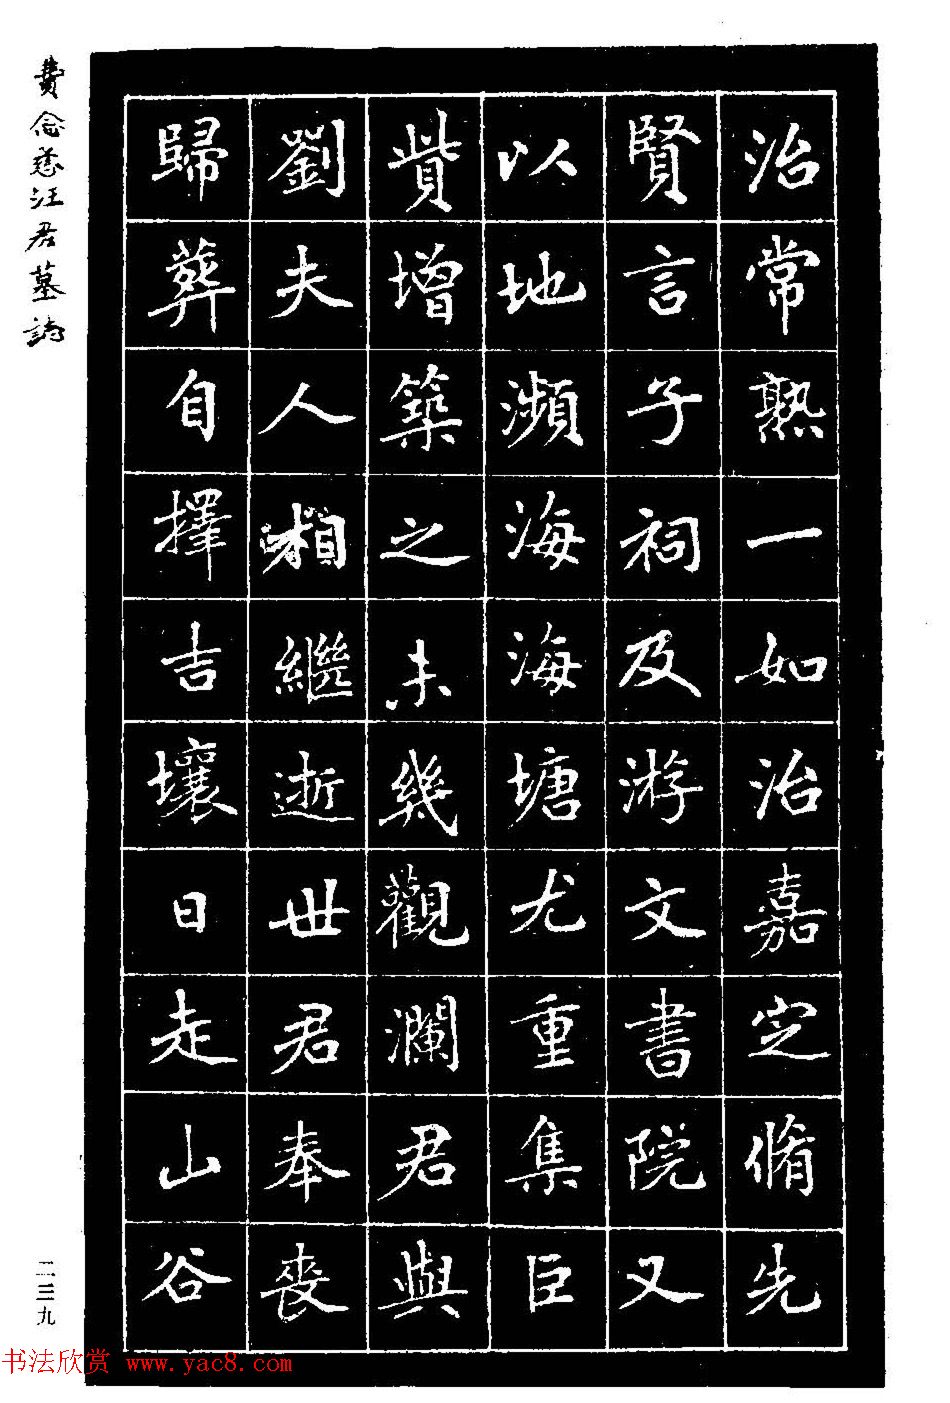 治常熟一如治嘉定脩先
賢言子祠及游文書院又
以地瀕海海塘尤重集臣
貲增築之未幾觀瀾君與
劉夫人相繼逝世君奉喪
歸葬自擇吉壤日走山谷
費念慈汪君墓誌
二三九
书法欣赏 www.yac8.com